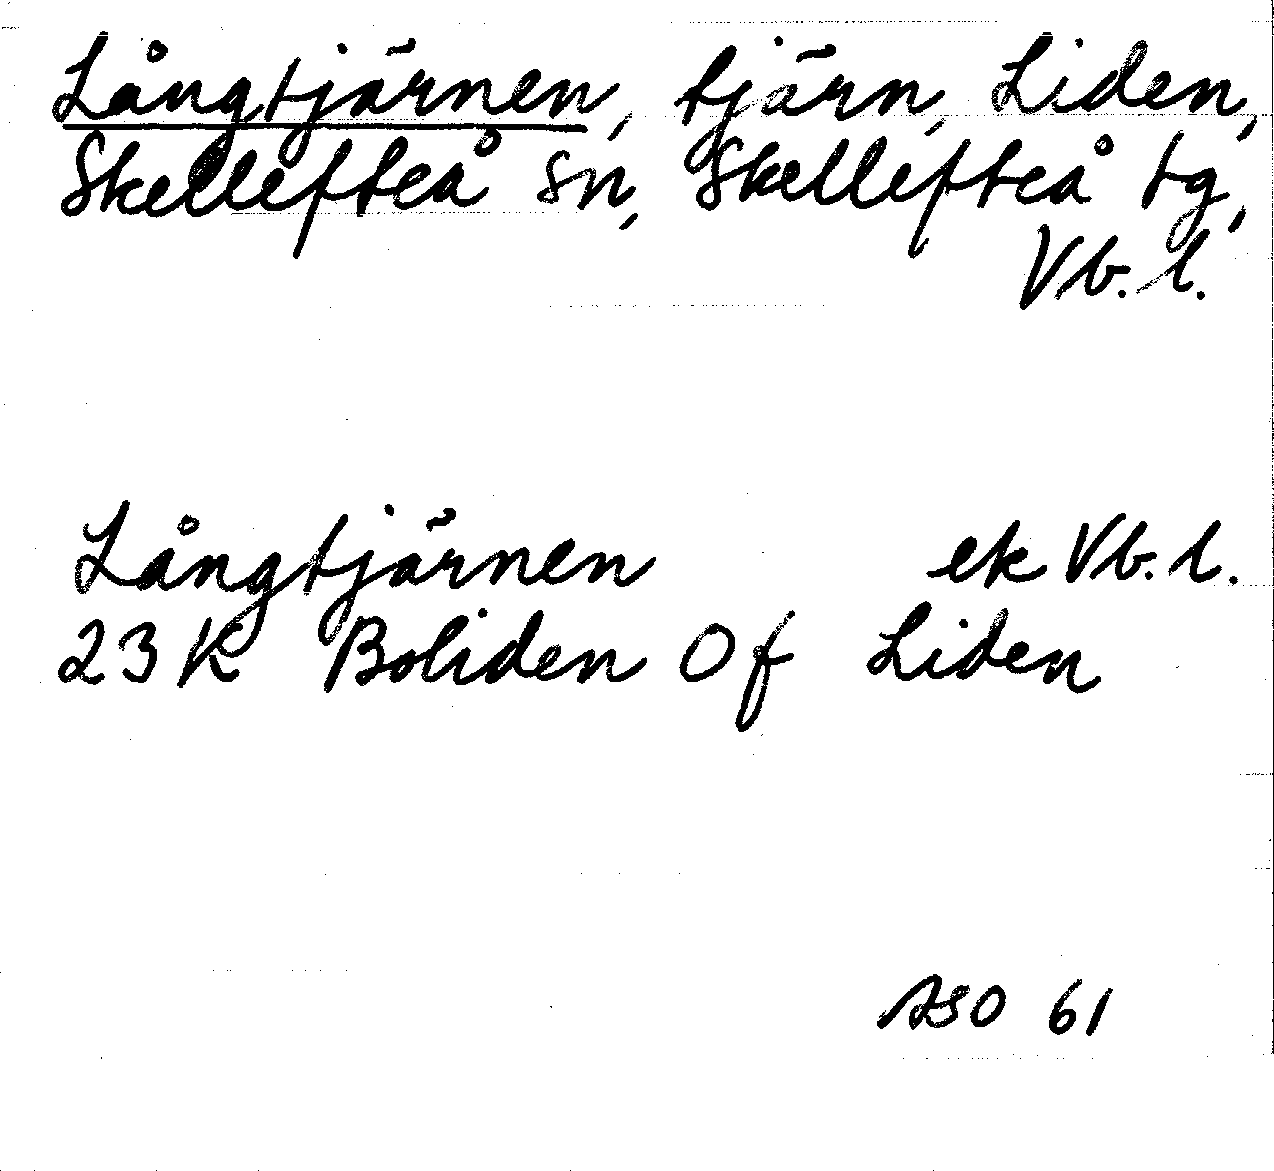 Långtjärnen, tjärn, Liden,
Skellefteå sn, Skellefteå tg,
Vb. l.
Långtjärnen ek Vb. l.
23 K Boliden Of Liden
ASO 61